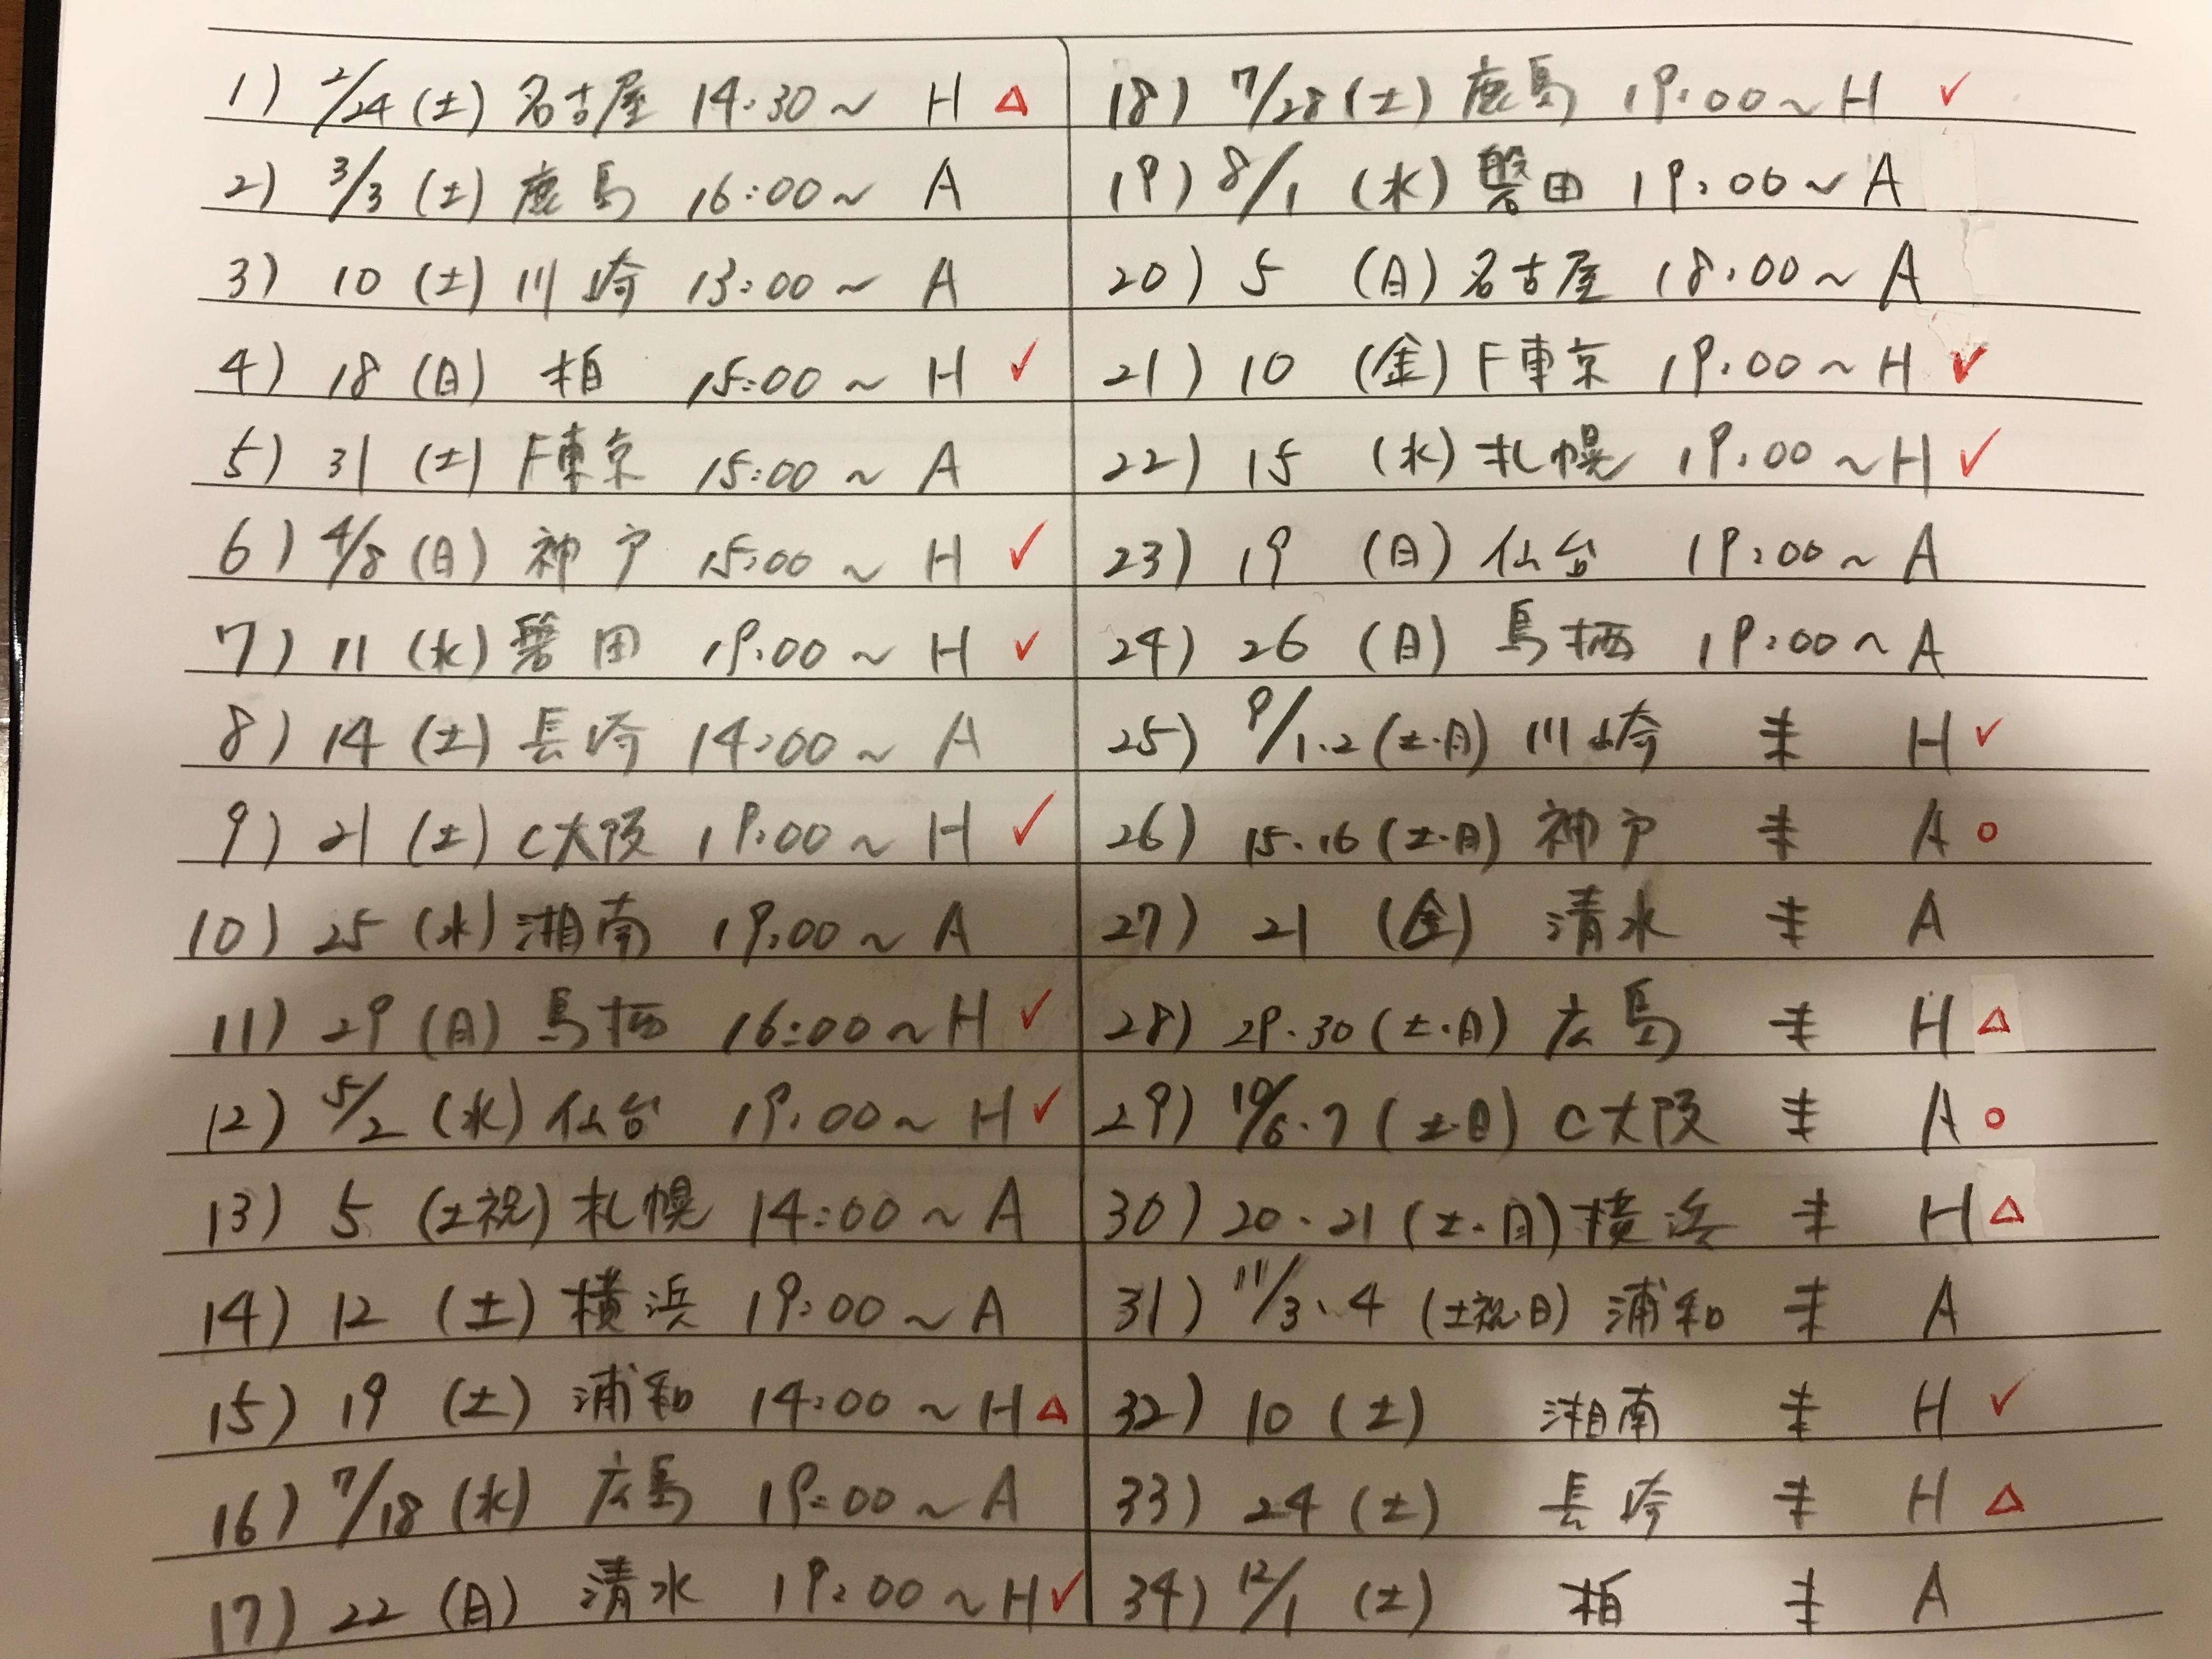 1) 2/24 (土) 名古屋 14:30~ H △
2) 3/3 (土) 鹿島 16:00~ A
3) 10 (土) 川崎 13:00~ A
4) 18 (日) 柏 15:00~ H ✓
5) 31 (土) F東京 15:00~ A
6) 4/8 (日) 神戸 15:00~ H ✓
7) 11 (水) 磐田 19:00~ H ✓
8) 14 (土) 長崎 14:00~ A
9) 21 (土) C大阪 19:00~ H ✓
10) 25 (水) 湘南 19:00~ A
11) 29 (日) 鳥栖 16:00~ H ✓
12) 5/2 (水) 仙台 19:00~ H ✓
13) 5 (土祝) 札幌 14:00~ A
14) 12 (土) 横浜 19:00~ A
15) 19 (土) 浦和 14:00~ H △
16) 7/18 (水) 広島 19:00~ A
17) 22 (日) 清水 19:00~ H ✓
18) 7/28 (土) 鹿島 19:00~ H ✓
19) 8/1 (水) 磐田 19:00~ A
20) 5 (日) 名古屋 18:00~ A
21) 10 (金) F東京 19:00~ H ✓
22) 15 (水) 札幌 19:00~ H ✓
23) 19 (日) 仙台 19:00~ A
24) 26 (日) 鳥栖 19:00~ A
25) 9/1.2 (土.日) 川崎 未 H ✓
26) 15.16 (土.日) 神戸 未 A ○
27) 21 (金) 清水 未 A
28) 29.30 (土.日) 広島 未 H △
29) 10/6.7 (土.日) C大阪 未 A ○
30) 20.21 (土.日) 横浜 未 H △
31) 11/3、4 (土祝.日) 浦和 未 A
32) 10 (土) 湘南 未 H ✓
33) 24 (土) 長崎 未 H △
34) 12/1 (土) 柏 未 A